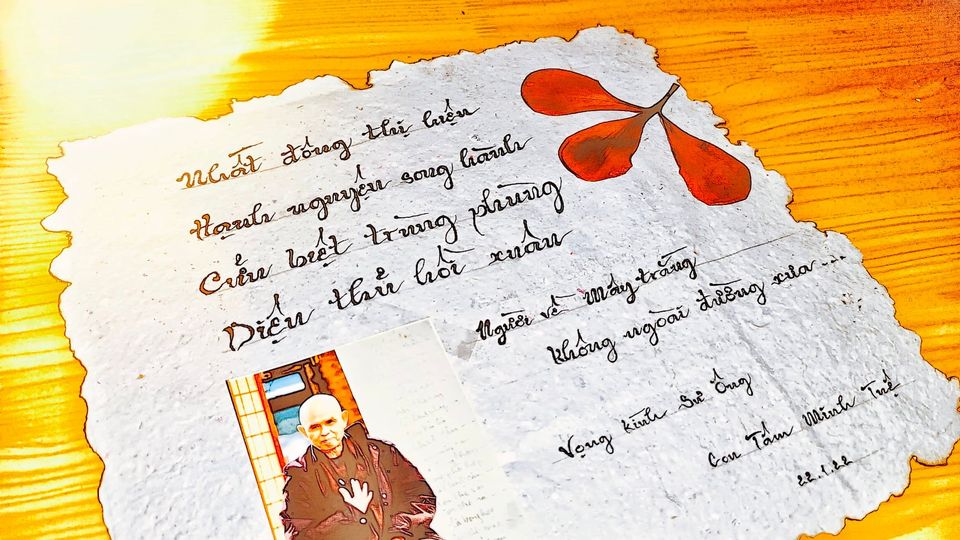 Nhất đông thị hiện
Hạnh nguyện song hành
Cửu biệt trùng phùng
Diệu thủ hồi xuân
Người về mây trắng
không ngoái đường xưa ...
Vọng kính Sư Ông
Con Tâm Minh Tuệ
22.1.22